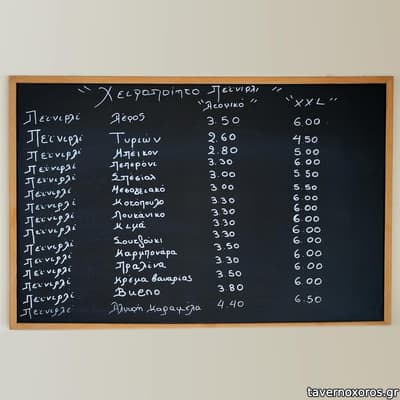 "Χειροποίητο Πεϊνιρλί"
"Ατομικό" "XXL"
Πεϊνιρλί 3.50 6.00
Πεϊνιρλί Τυριών 2.60 4.50
Πεϊνιρλί Μπέικον 2.80 5.00
Πεϊνιρλί Πεπερόνι 3.30 6.00
Πεϊνιρλί Σπέσιαλ 3.00 5.50
Πεϊνιρλί Μεσογειακό 3.00 5.50
Πεϊνιρλί Κοτόπουλο 3.30 6.00
Πεϊνιρλί Λουκάνικο 3.30 6.00
Πεϊνιρλί Κιμά 3.30 6.00
Πεϊνιρλί Σουτζούκι 3.30 6.00
Πεϊνιρλί Καρμπονάρα 3.50 6.00
Πεϊνιρλί Πραλίνα 3.30 6.00
Πεϊνιρλί Κρέμα 3.50 6.00
Πεϊνιρλί Bueno 3.80 6.00
Πεϊνιρλί Καραμέλα 4.40 6.50
tavernoxoros.gr